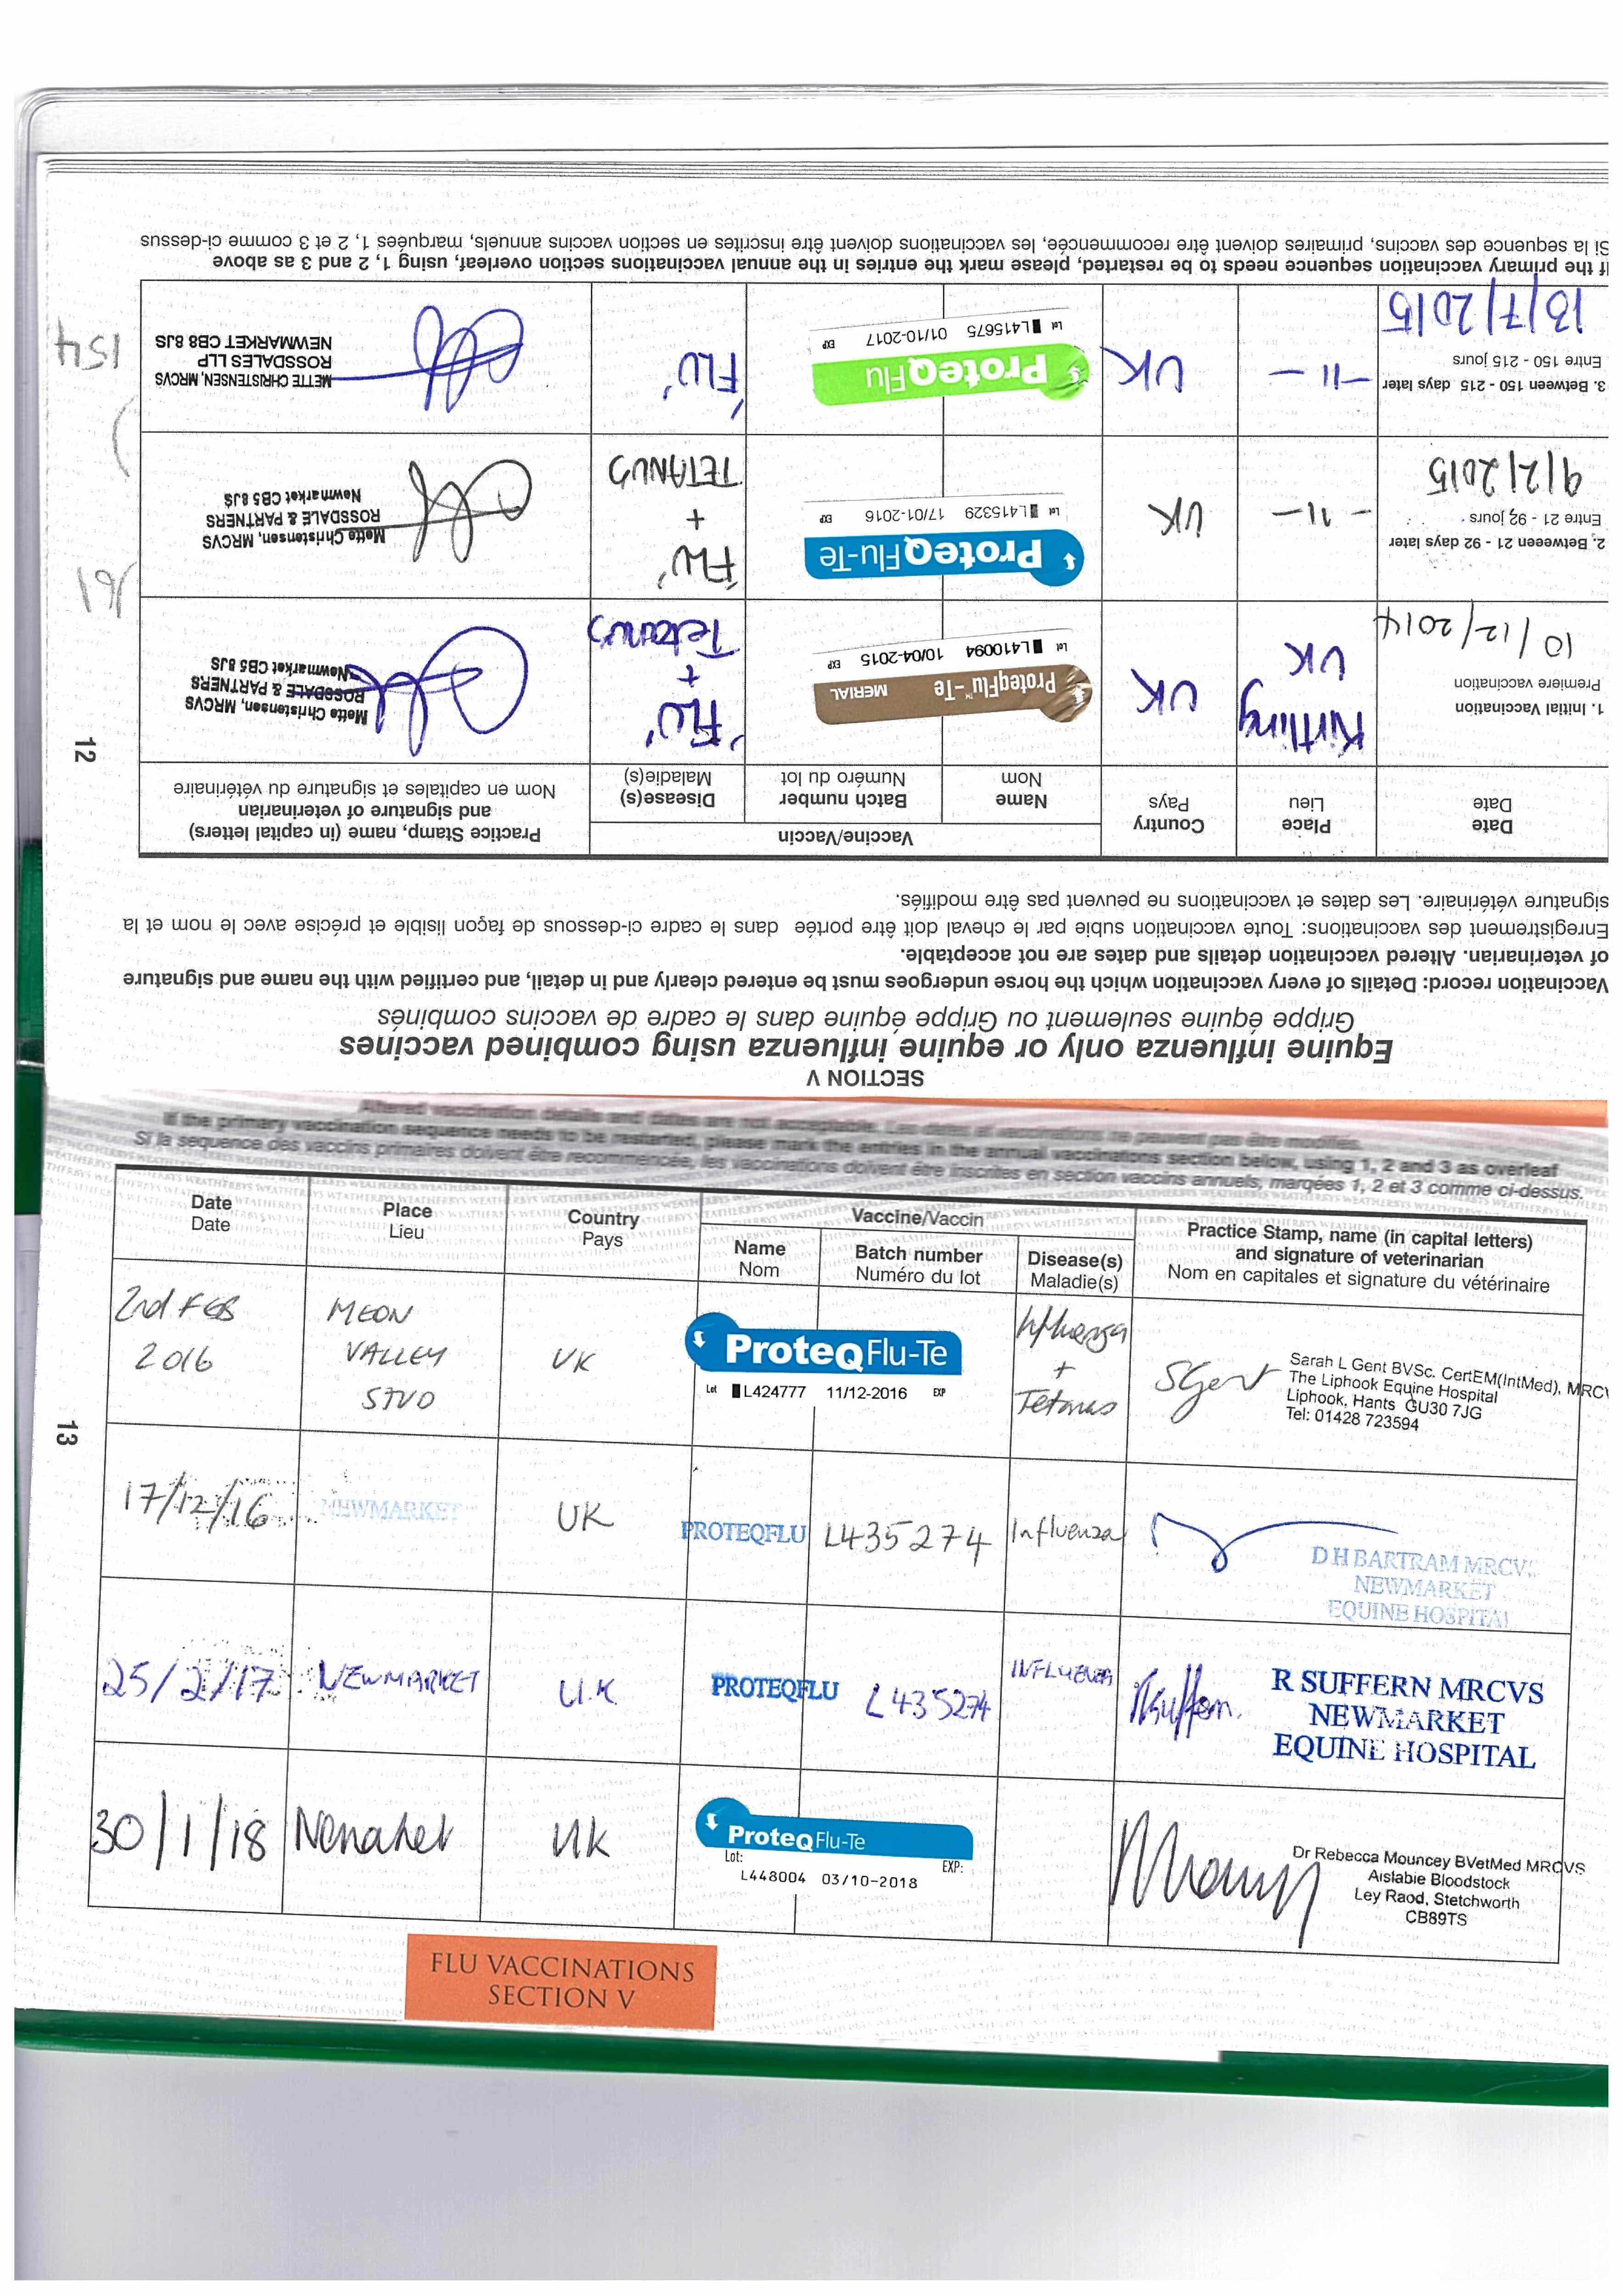 SECTION V
Equine influenza only or equine influenza using combined vaccines
Grippe équine seulement ou Grippe équine dans le cadre de vaccins combinés
Vaccination record: Details of every vaccination which the horse undergoes must be entered clearly and in detail, and certified with the name and signature
of veterinarian. Altered vaccination details and dates are not acceptable.
Enregistrement des vaccinations: Toute vaccination subie par le cheval doit être portée dans le cadre ci-dessous de façon lisible et précise avec le nom et la
signature vétérinaire. Les dates et vaccinations ne peuvent pas être modifiés.
Date
Date
Place
Lieu
Country
Pays
Vaccine/Vaccin
Name
Nom
Batch number
Numéro du lot
Disease(s)
Maladie(s)
Practice Stamp, name (in capital letters)
and signature of veterinarian
Nom en capitales et signature du vétérinaire
12
1. Initial Vaccination
Première vaccination
10/12/2014
Kirtling
UK
UK
ProteqFlu™-Te MERIAL
Lot L410094 10/04-2015 EXP
'FLU'
+
Tetanus
Mette Christensen, MRCVS
ROSSDALE & PARTNERS
Newmarket CB5 8JS
161
2. Betweeen 21 - 92 days later
Entre 21 - 92 jours
9/2/2015
-11-
UK
ProteqFlu-Te
Lot L415329 17/01-2016 EXP
FLU'
+
TETANUS
Mette Christensen, MRCVS
ROSSDALE & PARTNERS
Newmarket CB5 8JS
3. Between 150 - 215 days later
Entre 150 - 215 jours
13/7/2015
-11-
UK
ProteqFlu
Lot L415675 01/10-2017 EXP
'FLU'
METTE CHRISTENSEN, MRCVS
ROSSDALES LLP
NEWMARKET CB8 8JS
154
If the primary vaccination sequence needs to be restarted, please mark the entries in the annual vaccinations section overleaf, using 1, 2 and 3 as above
Si la sequence des vaccins, primaires doivent être recommencée, les vaccinations doivent être inscrites en section vaccins annuels, marquées 1, 2 et 3 comme ci-dessus
Altered vaccination details and dates are not acceptable. Les dates et vaccinations ne peuvent pas être modifiés.
If the primary vaccination sequence needs to be restarted, please mark the entries in the annual vaccinations section below, using 1, 2 and 3 as overleaf
Si la sequence des vaccins primaires doivent être recommencée, les vaccinations doivent être inscrites en section vaccins annuels, marqées 1, 2 et 3 comme ci-dessus.
Date
Date
Place
Lieu
Country
Pays
Vaccine/Vaccin
Name
Nom
Batch number
Numéro du lot
Disease(s)
Maladie(s)
Practice Stamp, name (in capital letters)
and signature of veterinarian
Nom en capitales et signature du vétérinaire
13
2nd FEB
2016
MEON
VALLEY
STUD
UK
ProteqFlu-Te
Lot L424777 11/12-2016 EXP
Influenza
+
Tetanus
SGent
Sarah L Gent BVSc. CertEM(IntMed), MRCV
The Liphook Equine Hospital
Liphook, Hants GU30 7JG
Tel: 01428 723594
17/12/16
NEWMARKET
UK
PROTEQFLU
L435274
Influenza
D H BARTRAM MRCVS
NEWMARKET
EQUINE HOSPITAL
25/2/17
NEWMARKET
U.K
PROTEQFLU
L435274
INFLUENZA
RSuffern.
R SUFFERN MRCVS
NEWMARKET
EQUINE HOSPITAL
30/1/18
UK
ProteqFlu-Te
Lot: EXP:
L448004 03/10-2018
Dr Rebecca Mouncey BVetMed MRCVS
Aislabie Bloodstock
Ley Raod, Stetchworth
CB89TS
FLU VACCINATIONS
SECTION V